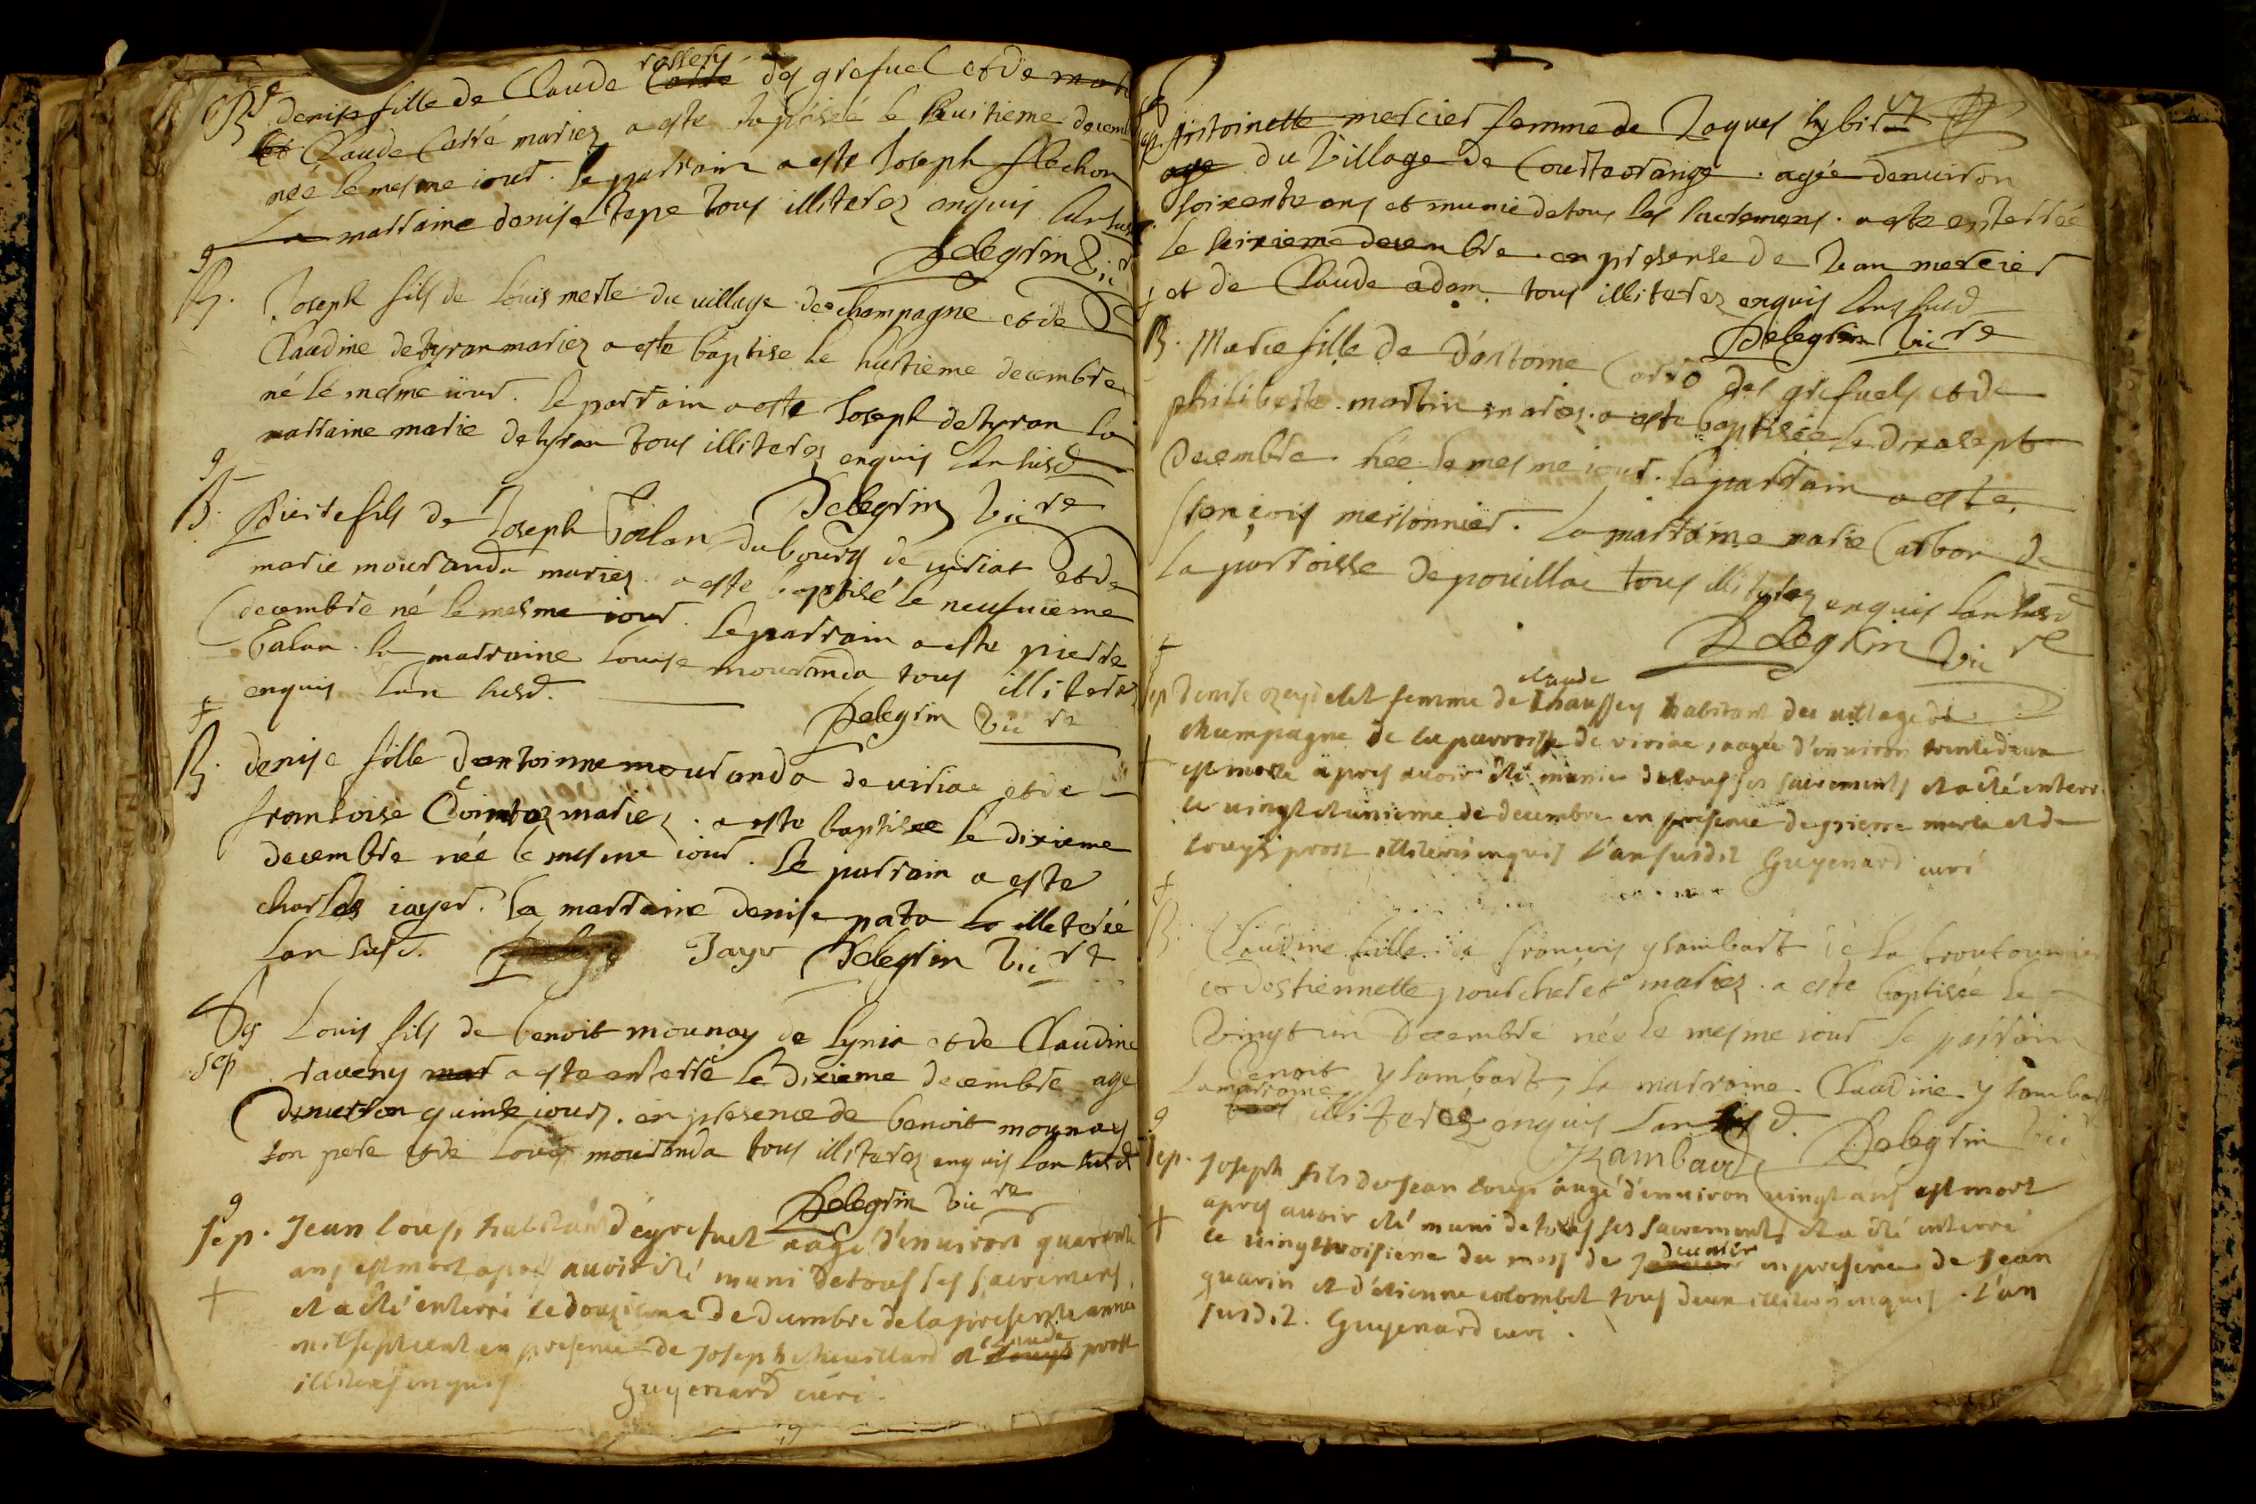 B denise fille de Claude rollery des grefuel et de
Claude Carré mariez a esté baptiséé le huitieme decemb
néé le mesme iour. le parrain a esté Joseph flechon
La marraine denise tepe tous illiterez enquis lan susd
Pelegrin Vic re
B. Joseph fils de Louis merle du uillage de champagne et de
Claudine detyran mariez a esté baptise le huitieme decembre
né le mesme iour. le parrain a esté Joseph detyran la
marraine marie detyran tous illiterez enquis lan susd
Pelegrin Vic re
B. pierre fils de Joseph Palan du bourg de uiriat et de
marie mouranda mariez a esté baptisé le neufuieme
decembre né le mesme iour. le parrain a esté pierre
Palan. la marraine Louise mouranda tous illiterez
enquis lan susd.
Pelegrin Vic re
B. denise fille dantoinne mouranda de uiriac et de
francoise mariez. a esté baptisee le dixieme
decembre néé le mesme iour. Le parrain a esté
charles iayer. La marraine denise pata illiteréé
lan susd. Jayr Pelegrin Vic re
Sep Louis fils de benoit mounay de Lynia et de Claudine
raveny a esté enterré le dixieme decembre agé
denuiron quinze iours. en presence de benoit mounay
son pere et de Louis mouranda tous illiterez enquis lan susd
Pelegrin Vic re
Sep. Jean loup habitant d'egrefuel aagé d'enuiron quarante
ans est mort apres auoir été muni de tous ses sacremens
et a été enterré le douzieme de decembre de la presente annee
mil sept cent en presence de Joseph cheuillard et claude prost
illiteres enquis Guyenard curé.
Sep. Antoinette mercier femme de Jaques
du Village de Courtaorange. agéé denuiron
soixente ans et munie de tous les sacremens. a esté enterréé
le sixieme decembre en presense de Jean mercier
et de Claude adam. tous illiterez enquis lans susd
Pelegrin Vic re
B. Marie fille de d'antoine Carro des grefuels et de
philiberte martin mariez. a esté baptiséé le dixasept
Decembre néé le mesme iour. le parrain a esté
francois messonnier. La marraine marie Carbon de
la parroisse de pouillac tous illiterez enquis lan susd
Pelegrin Vic re
Sep Denise femme de claude chaussey habitant du uillage de
champagne de la parroisse de viriac, aagée d'enuiron trente deux
est morte apres auoir été munie de tous ses sacrements et a été enterr
le uingt et unieme de decembre en presence de pierre merle et de
Louys prost illiterés enquis l'an susdit Guyenard curé
B. Claudine fille de francois ysambart de la
et destiennette pourcheret mariez. a esté baptiséé le
Vingt un Decembre néé le mesme iour le parrain
benoit ysambart, la marraine. Claudine ysambar
La marraine illiteréz enquis lan susd.
Isambard Pelegrin Vic r
Sep. Joseph fils de Jean loup aagé d'enuiron uingt ans est mort
apres auoir été muni de tous ses sacrements et a été enterré
le uingt troisieme du mois de decembr en presence de Jean
guarin et d'étienne colombet tous deux illiteres enquis l'an
susdit. Guyenard curé.